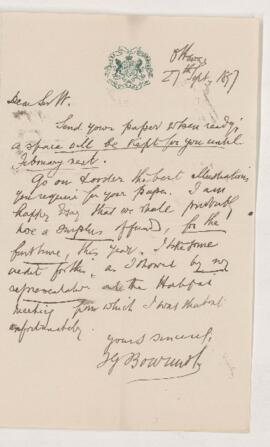 Ottawa
27th Sept. 1897
Dear Sir W.
Send your paper when ready;
a space will be kept for you until
February next.
Go on & order the best illustrations
you require for your paper. I am
happy to say that we shall probably
have a surplus of funds, for the
first time, this year. I take some
credit for this, as I showed by no
the Halifax
meeting from which I was absent
unfortunately.
Yours sincerely,
J G Bourinot